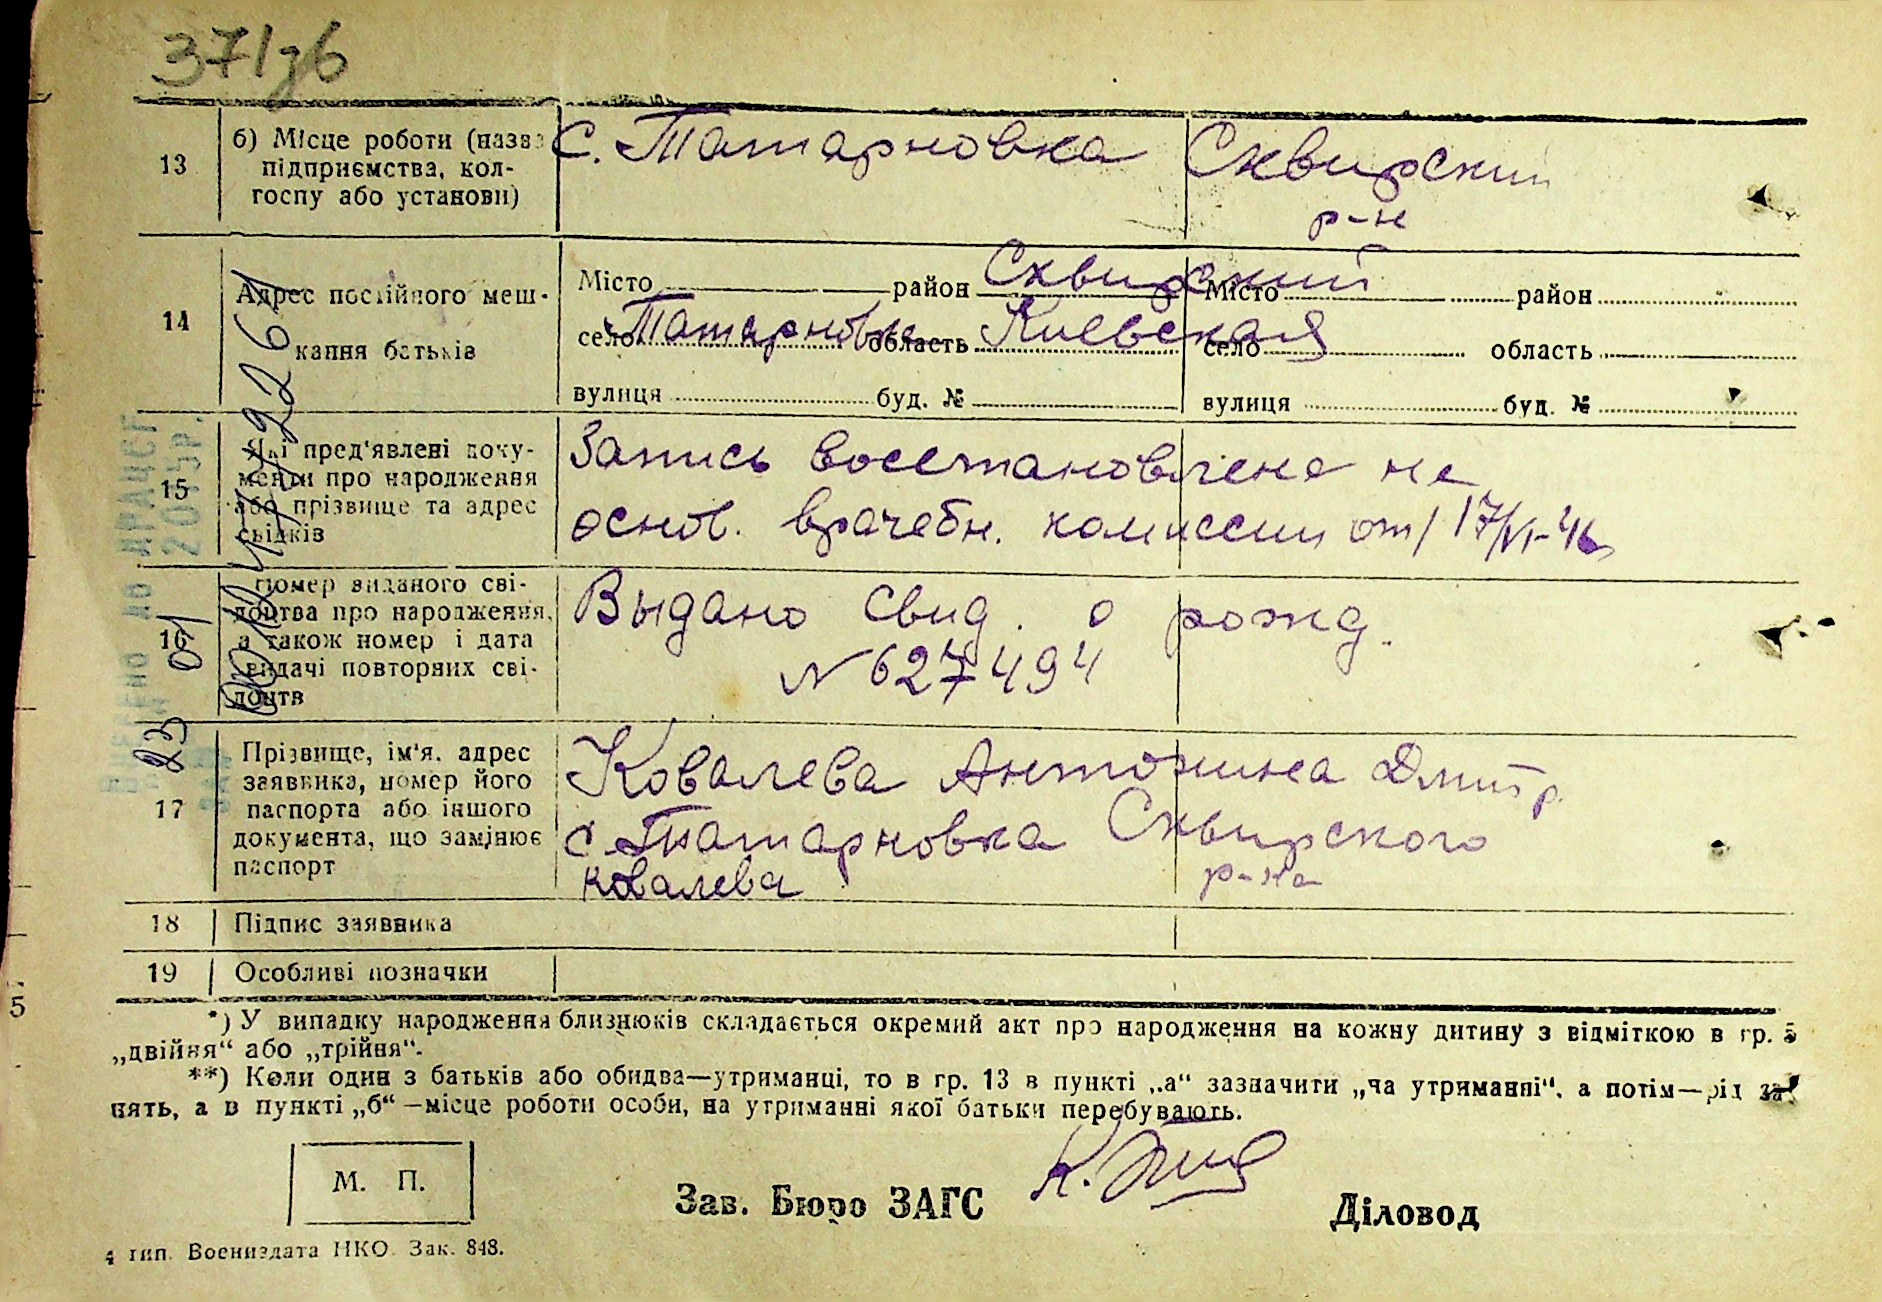 371зб
13 б) Місце роботи (назва підприємства, колгоспу або установи) с. Татарновка Сквирский
р-н
14 Адрес постійного мешкання батьків
Місто район Сквирский Місто район
село Татарновка область Киевская село область
вулиця буд. № вулиця буд. №
15 Які пред'явлені документи про народження або прізвище та адрес свідків
Запись восстановлена на
основ. врачебн. комиссии от 17/VI-46
16 Номер виданого свідоцтва про народження, а також номер і дата видачі повторних свідоцтв
Выдано свид. о рожд.
N 627494
17 Прізвище, ім'я, адрес заявника, номер його паспорта або іншого документа, що замінює паспорт
Ковалева Антонина Дмитр.
с. Татарновка Сквирского
р-на
Ковалева
18 Підпис заявника
19 Особливі позначки
*) У випадку народження близнюків складається окремий акт про народження на кожну дитину з відміткою в гр. 5
„двійня“ або „трійня“.
**) Коли один з батьків або обидва—утриманці, то в гр. 13 в пункті „а“ зазначити „на утриманні“, а потім—рід за-
нять, а в пункті „б“—місце роботи особи, на утриманні якої батьки перебувають.
М. П.
Зав. Бюро ЗАГС Діловод
4 тип. Воениздата НКО. Зак. 848.